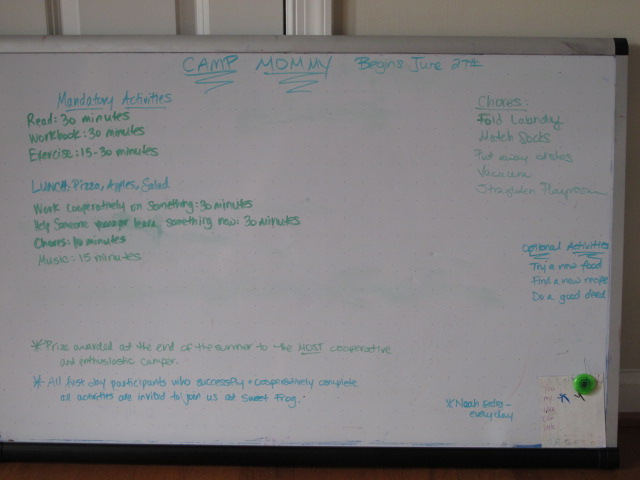 CAMP MOMMY Begins June 27th
Mandatory Activities
Read: 30 minutes
Workbook: 30 minutes
Exercise: 15-30 minutes
LUNCH: Pizza, Apples, Salad
Work cooperatively on something: 30 minutes
Help someone learn something new: 30 minutes
Chores: 10 minutes
Music: 15 minutes
Chores:
Fold Laundry
Match Socks
Put away dishes
Vacuum
Straighten Playroom
Optional Activities
Try a new food
Find a new recipe
Do a good deed
*Prize awarded at the end of the summer to the MOST cooperative
and enthusiastic camper.
* All first day participants who + cooperatively complete
all activities are invited to join us at Sweet Frog.
*Noah
everyday